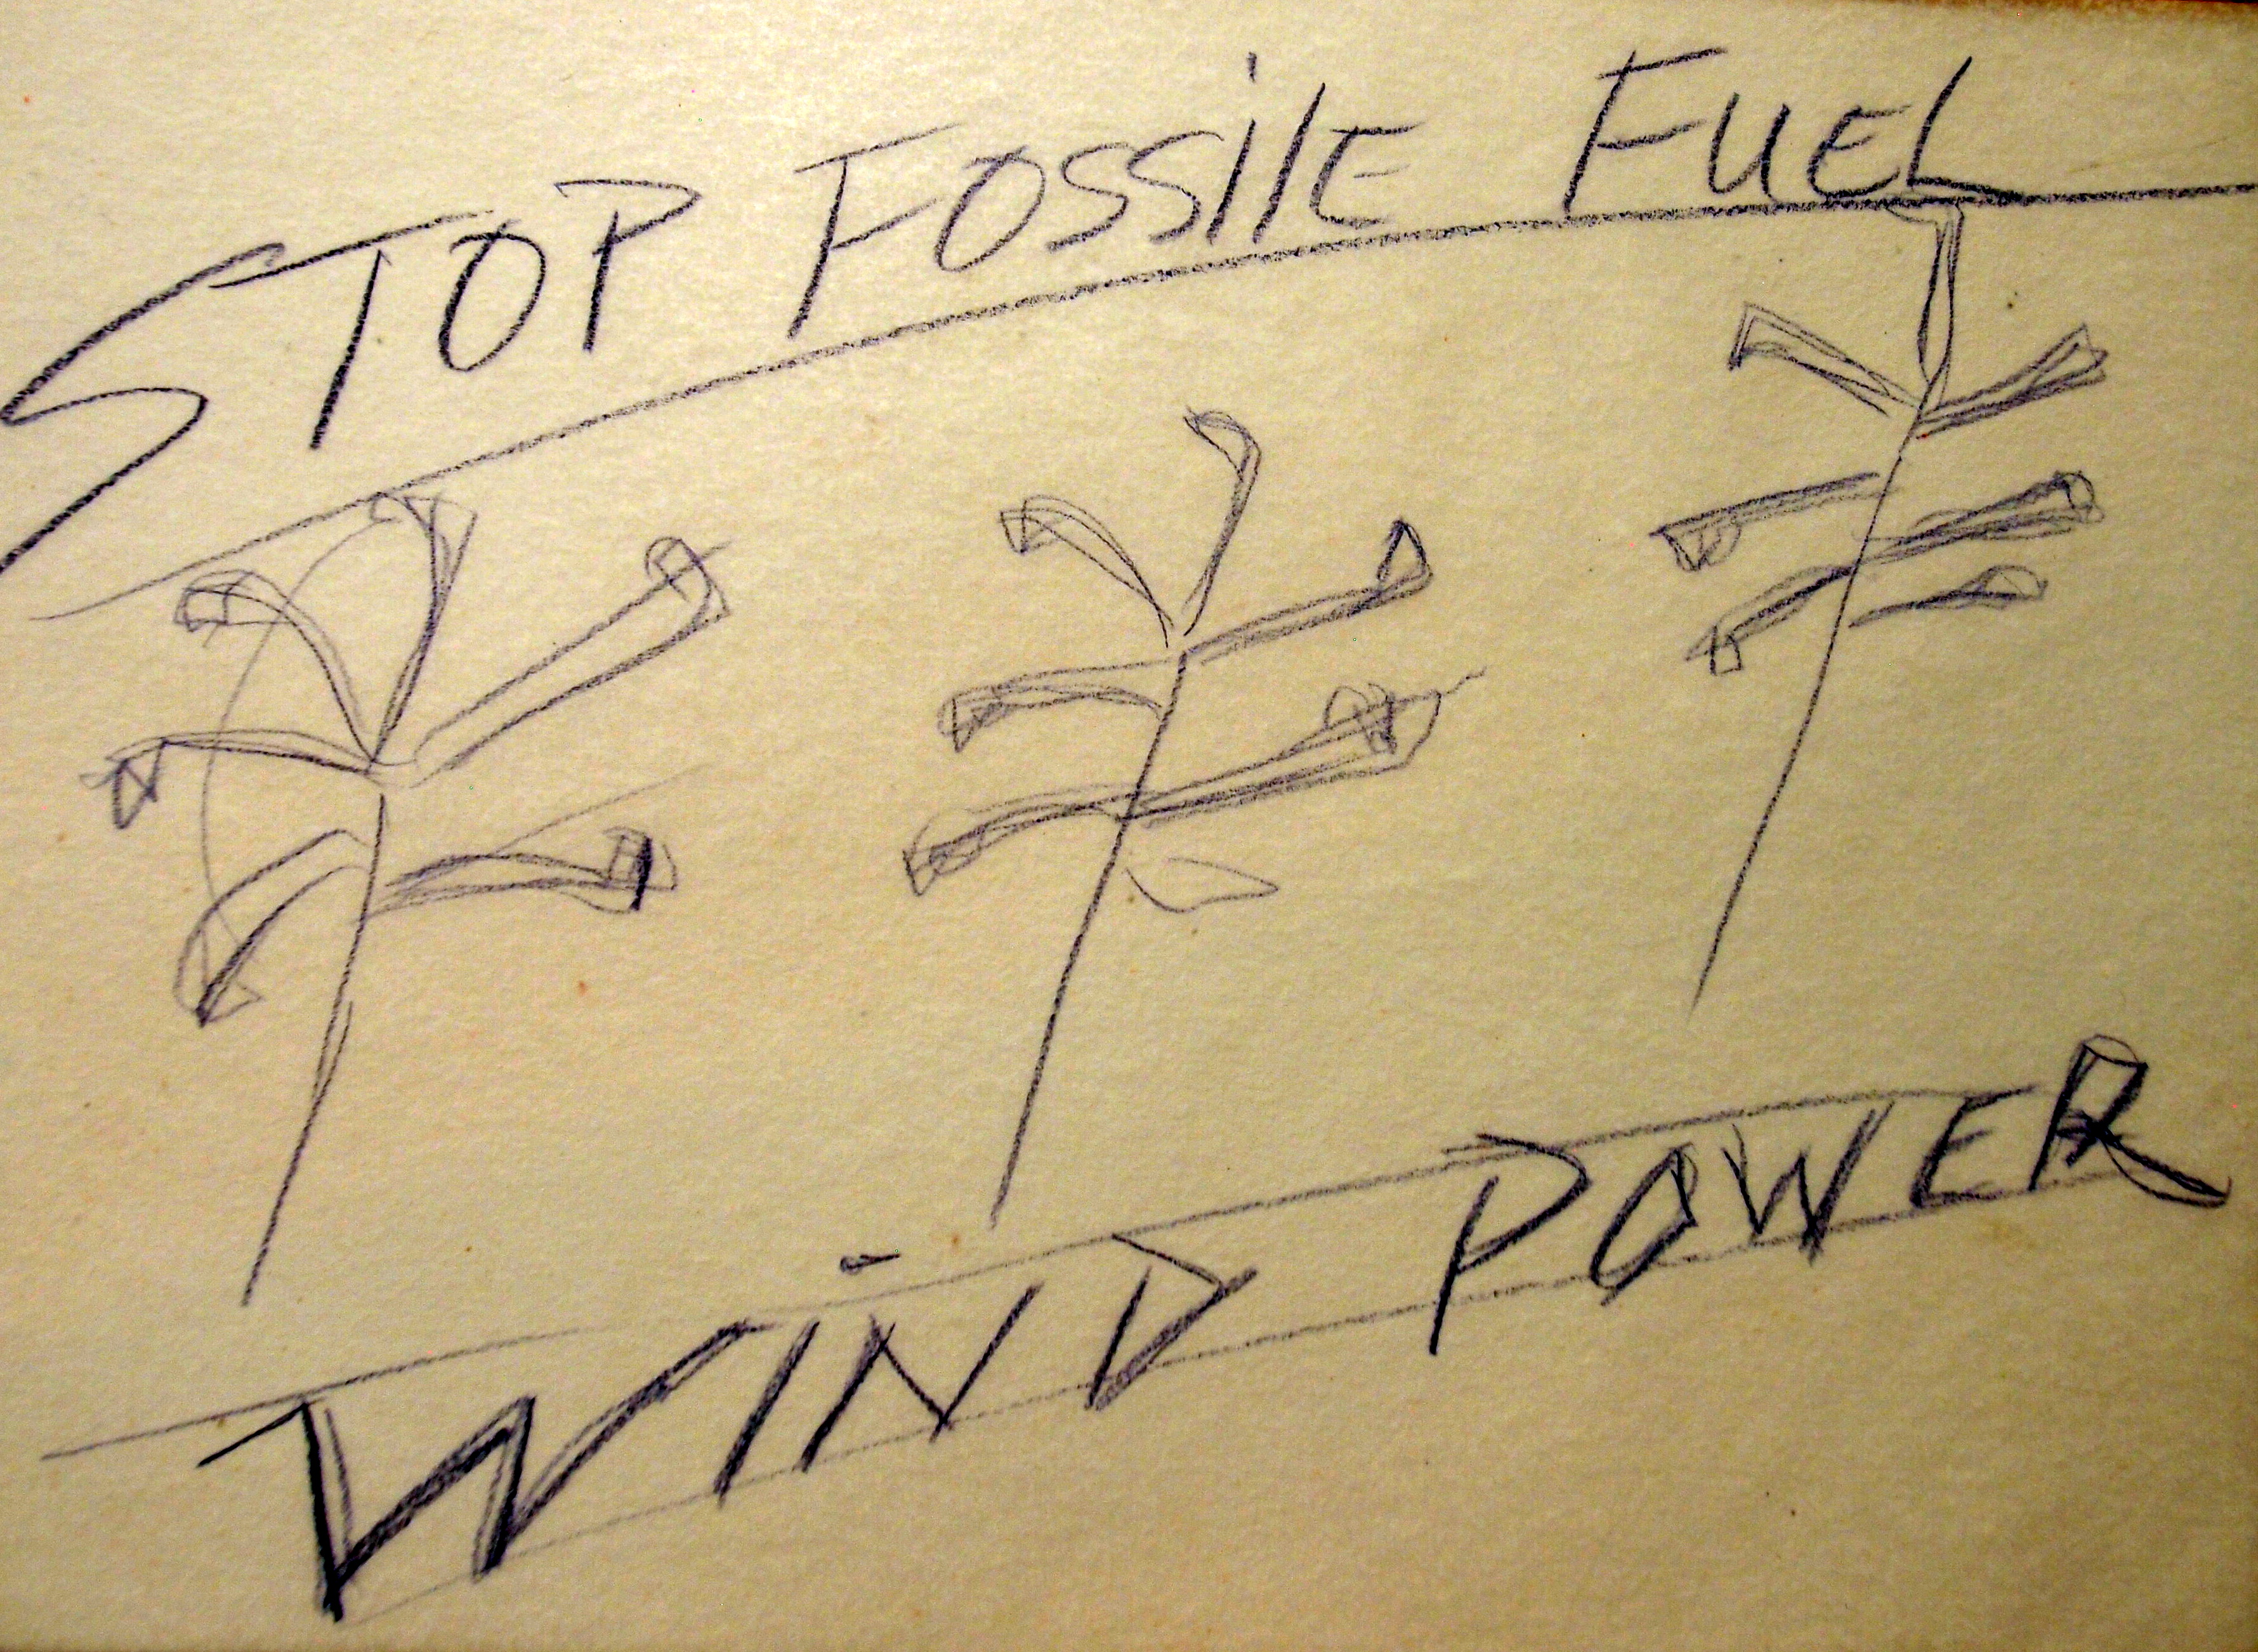 STOP FOSSilE FUEL
WiND POWER